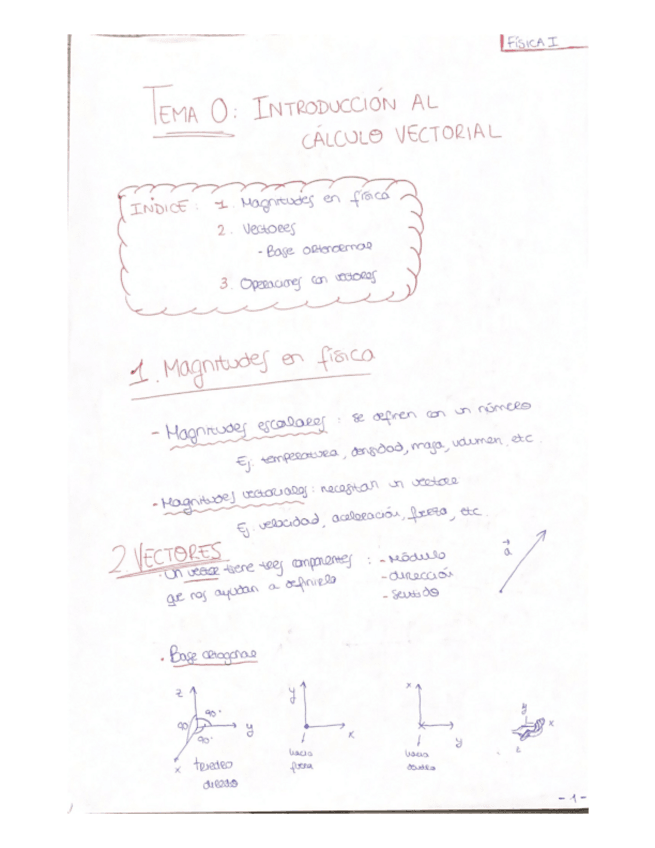 FÍSICA I
TEMA 0: INTRODUCCIÓN AL
CÁLCULO VECTORIAL
INDICE: 1. Magnitudes en física
2. Vectores
- Base ortonormal
3. Operaciones con vectores
1. Magnitudes en física
- Magnitudes escalares: se definen con un número
Ej: temperatura, densidad, masa, volumen, etc.
- Magnitudes vectoriales: necesitan un vector
Ej: velocidad, aceleración, fuerza, etc.
2. VECTORES
· Un vector tiene tres componentes : - Módulo
que nos ayudan a definirlo - dirección
- Sentido
a
· Base ortogonal
z y x y
90° 90 90°
y x y x
x z
triedro hacia hacia
directo fuera dentro
- 1 -